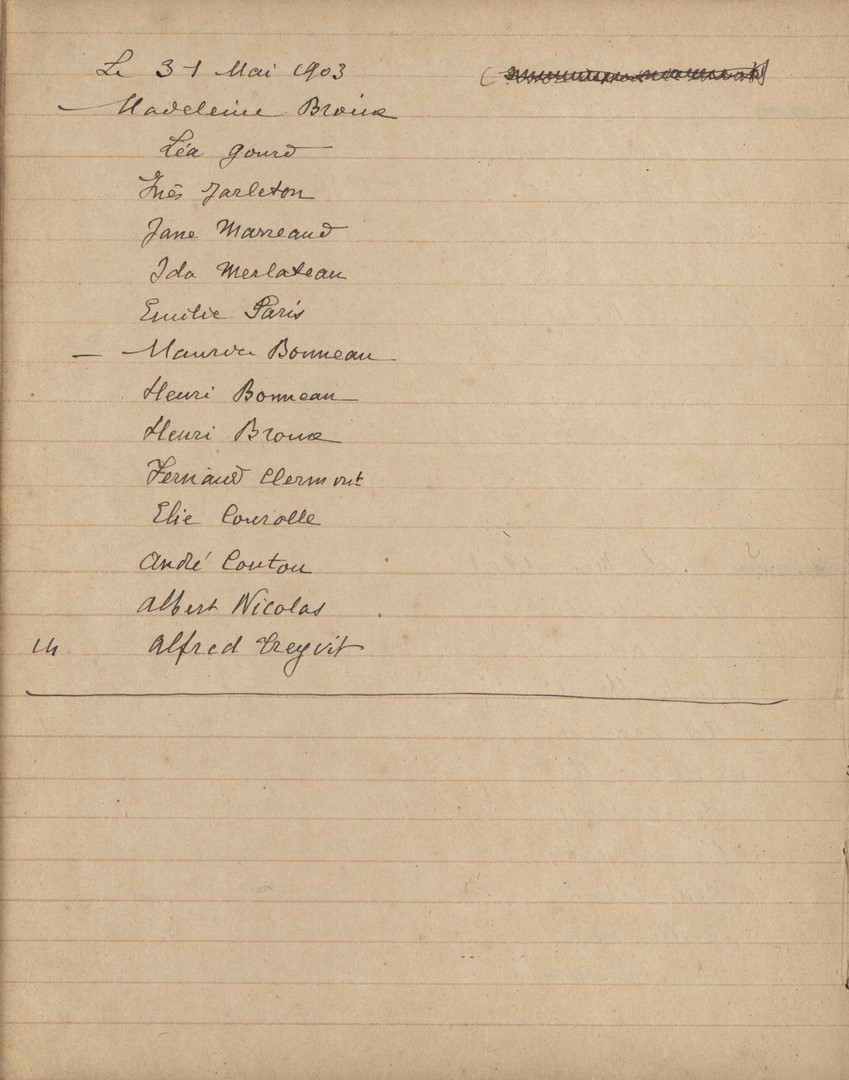 Le 31 Mai 1903
Madeleine Broux
Léa Gourd
Inès Jarleton
Jane Marreaud
Ida Merlateau
Emilie Paris
— Maurice Bonneau
Henri Bonneau
Henri Broux
Fernand Clermont
Elie Courolle
André Couton
Albert Nicolas
14 Alfred Treyvit